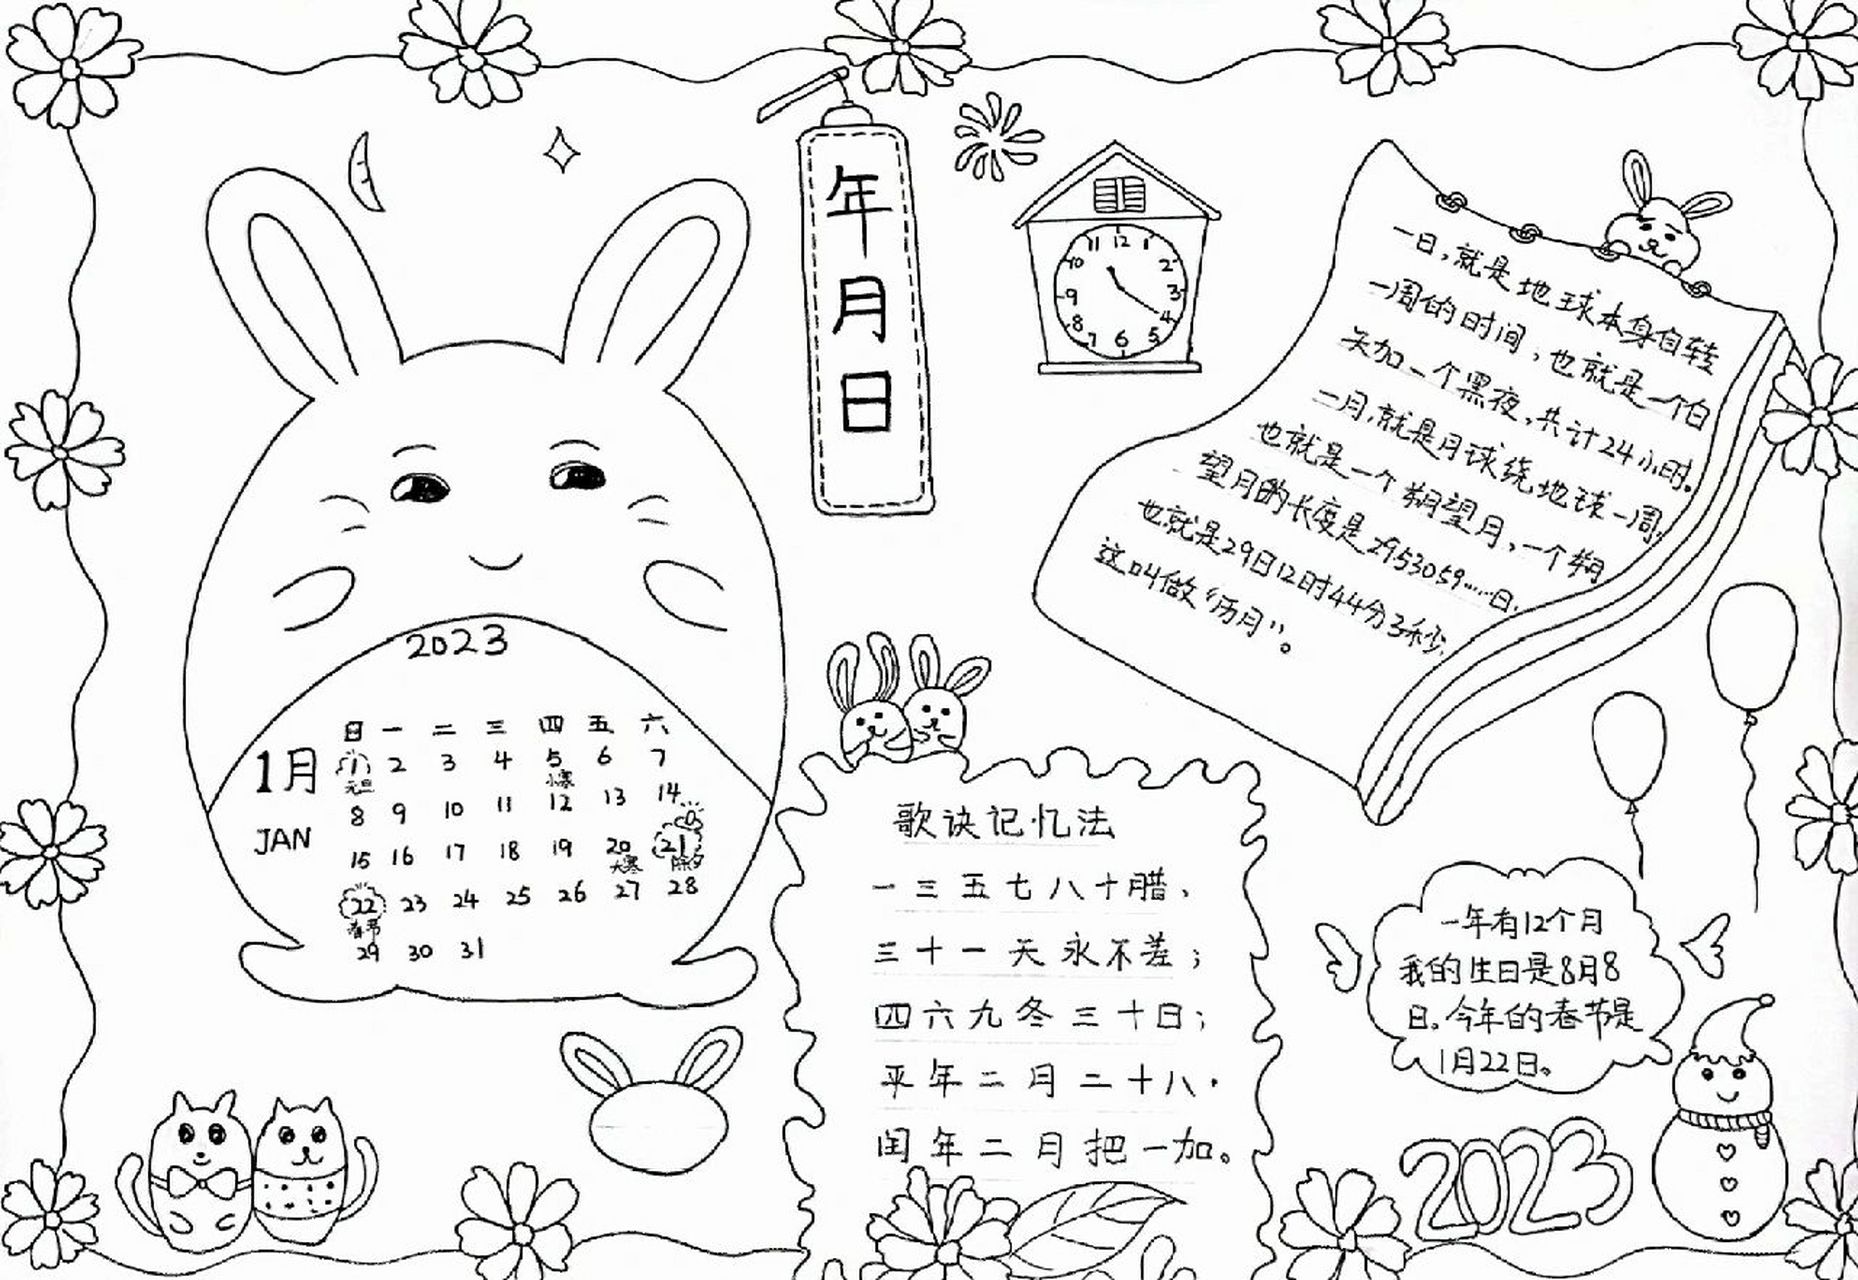 年月日
11 12 1
10 2
9 3
8 4
7 6 5
一日，就是地球本身自转
一周的时间，也就是一个白
天加一个黑夜，共计24小时。
二月，就是月球绕地球一周，
也就是一个朔望月，一个朔
望月的长度是29.53059……日，
也就是29日12时44分3秒，
这叫做“历月”。
2023
1月
JAN
日 一 二 三 四 五 六
1 2 3 4 5 6 7
元旦 小寒
8 9 10 11 12 13 14
15 16 17 18 19 20 21
大寒 除夕
22 23 24 25 26 27 28
春节
29 30 31
歌诀记忆法
一三五七八十腊，
三十一天永不差；
四六九冬三十日；
平年二月二十八，
闰年二月把一加。
一年有12个月
我的生日是8月8
日。今年的春节是
1月22日。
2023